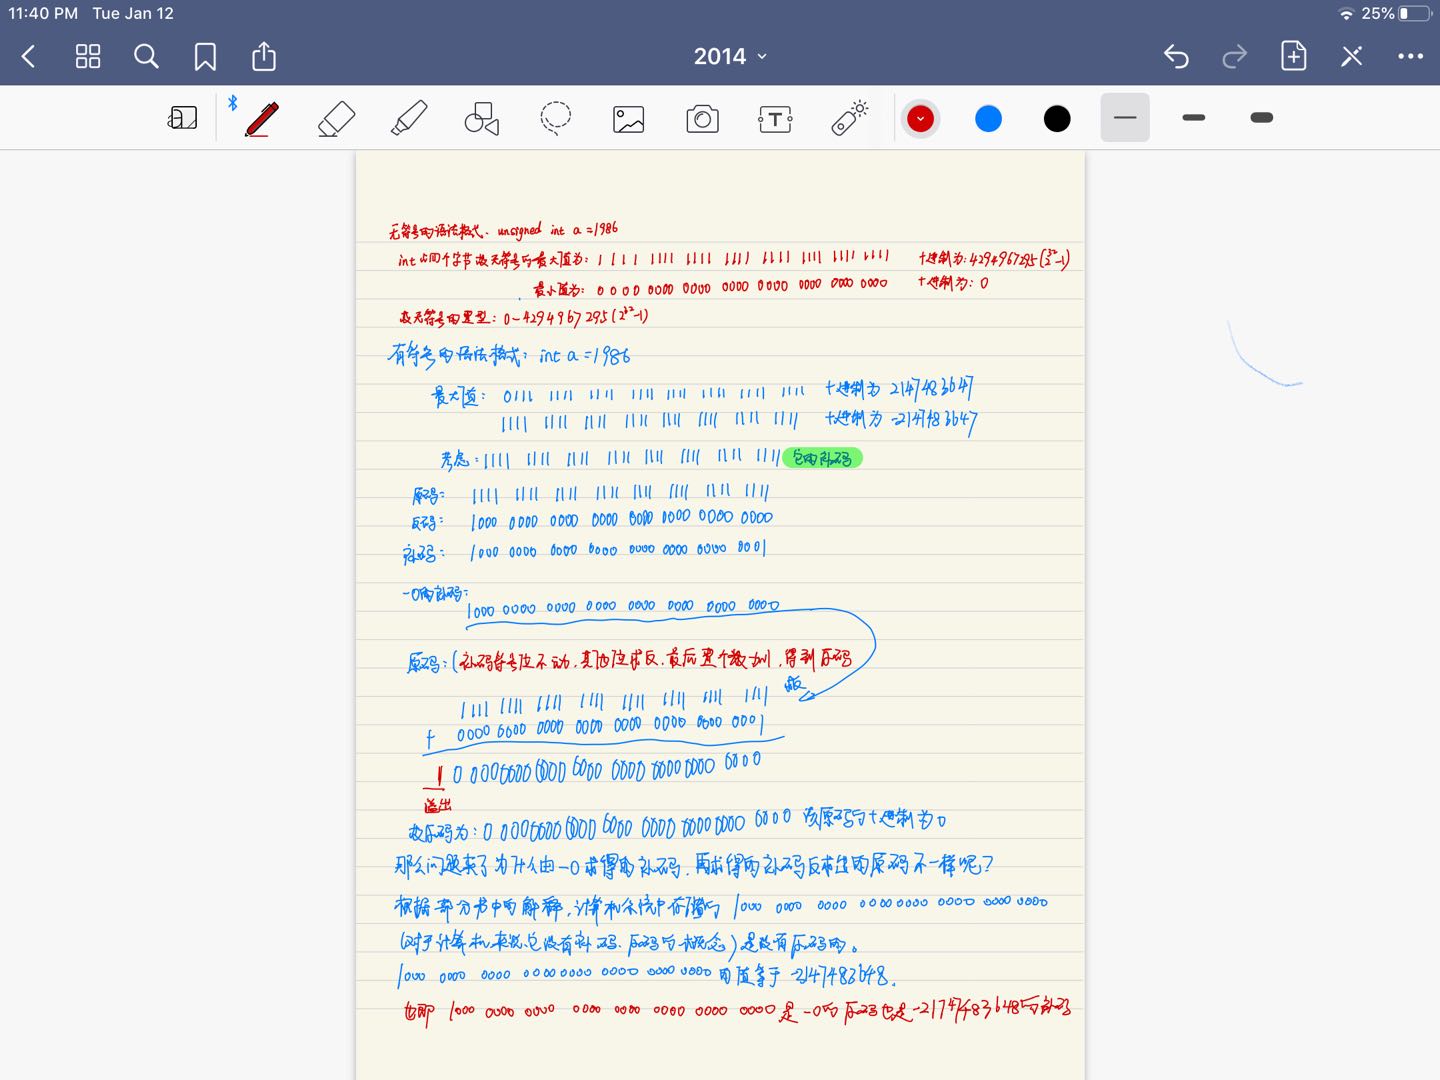 11:40 PM Tue Jan 12
25%
2014
无符号的语法格式: unsigned int a=1986
int 占四个字节 故无符号的最大值为: 1111 1111 1111 1111 1111 1111 1111 1111 十进制为: 4294967295(2^32-1)
最小值为: 0000 0000 0000 0000 0000 0000 0000 0000 十进制为: 0
故无符号的类型: 0-4294967295(2^32-1)
有符号的语法格式: int a=1986
最大值: 0111 1111 1111 1111 1111 1111 1111 1111 十进制为 2147483647
1111 1111 1111 1111 1111 1111 1111 1111 十进制为 -2147483647
考虑: 1111 1111 1111 1111 1111 1111 1111 1111 它的补码
原码: 1111 1111 1111 1111 1111 1111 1111 1111
反码: 1000 0000 0000 0000 0000 0000 0000 0000
补码: 1000 0000 0000 0000 0000 0000 0000 0001
-0的补码:
1000 0000 0000 0000 0000 0000 0000 0000
原码: (补码符号位不动,其他位求反,最后整个数加1,得到原码
1111 1111 1111 1111 1111 1111 1111 1111
+ 0000 0000 0000 0000 0000 0000 0000 0001
1 0 000 0000 0000 0000 0000 0000 0000 0000
溢出
故原码为: 0 000 0000 0000 0000 0000 0000 0000 0000 该原码的十进制为0
那么问题来了为什么由-0求得的补码,再求得的补码反求出的原码不一样呢?
根据部分书中的解释,计算机系统中存储的 1000 0000 0000 0000 0000 0000 0000 0000
(对于计算机来说它没有补码、原码的概念)是没有原码的。
1000 0000 0000 0000 0000 0000 0000 0000 的值等于 -2147483648.
也即 1000 0000 0000 0000 0000 0000 0000 0000 是 -0的原码也是-21747483648的补码